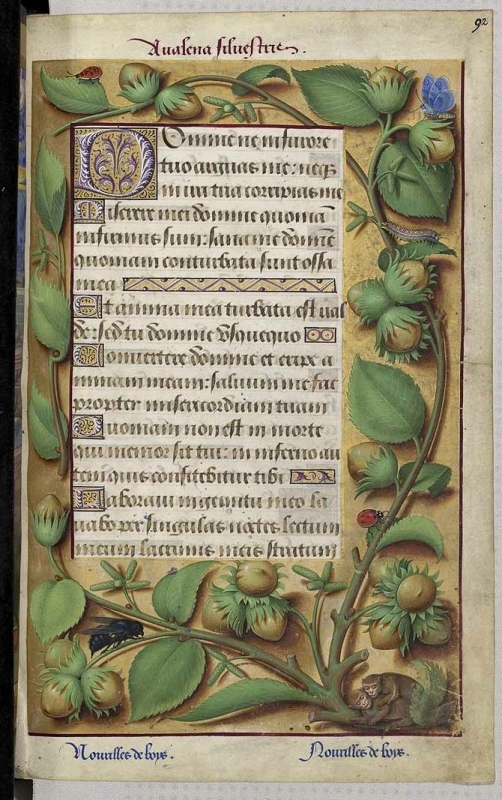 92
Aualena siluestris.
Domine ne in furore
tuo arguas me: neq3
in ira tua corripias me
Miserere mei domine quoniā
infirmus sum: sana me domīe
quoniam conturbata sunt ossa
mea
Et anima mea turbata est val
de: sed tu domine vsquequo
Conuertere domine et eripe a
nimam meam: saluum me fac
propter misericordiam tuam
Quoniam non est in morte
qui memor sit tui: in inferno au
tem quis confitebitur tibi
Laboraui in gemitu meo la
uabo per singulas noctes lectum
meum lacrimis meis stratum
Nouzilles de boys.
Nouzilles de boys.